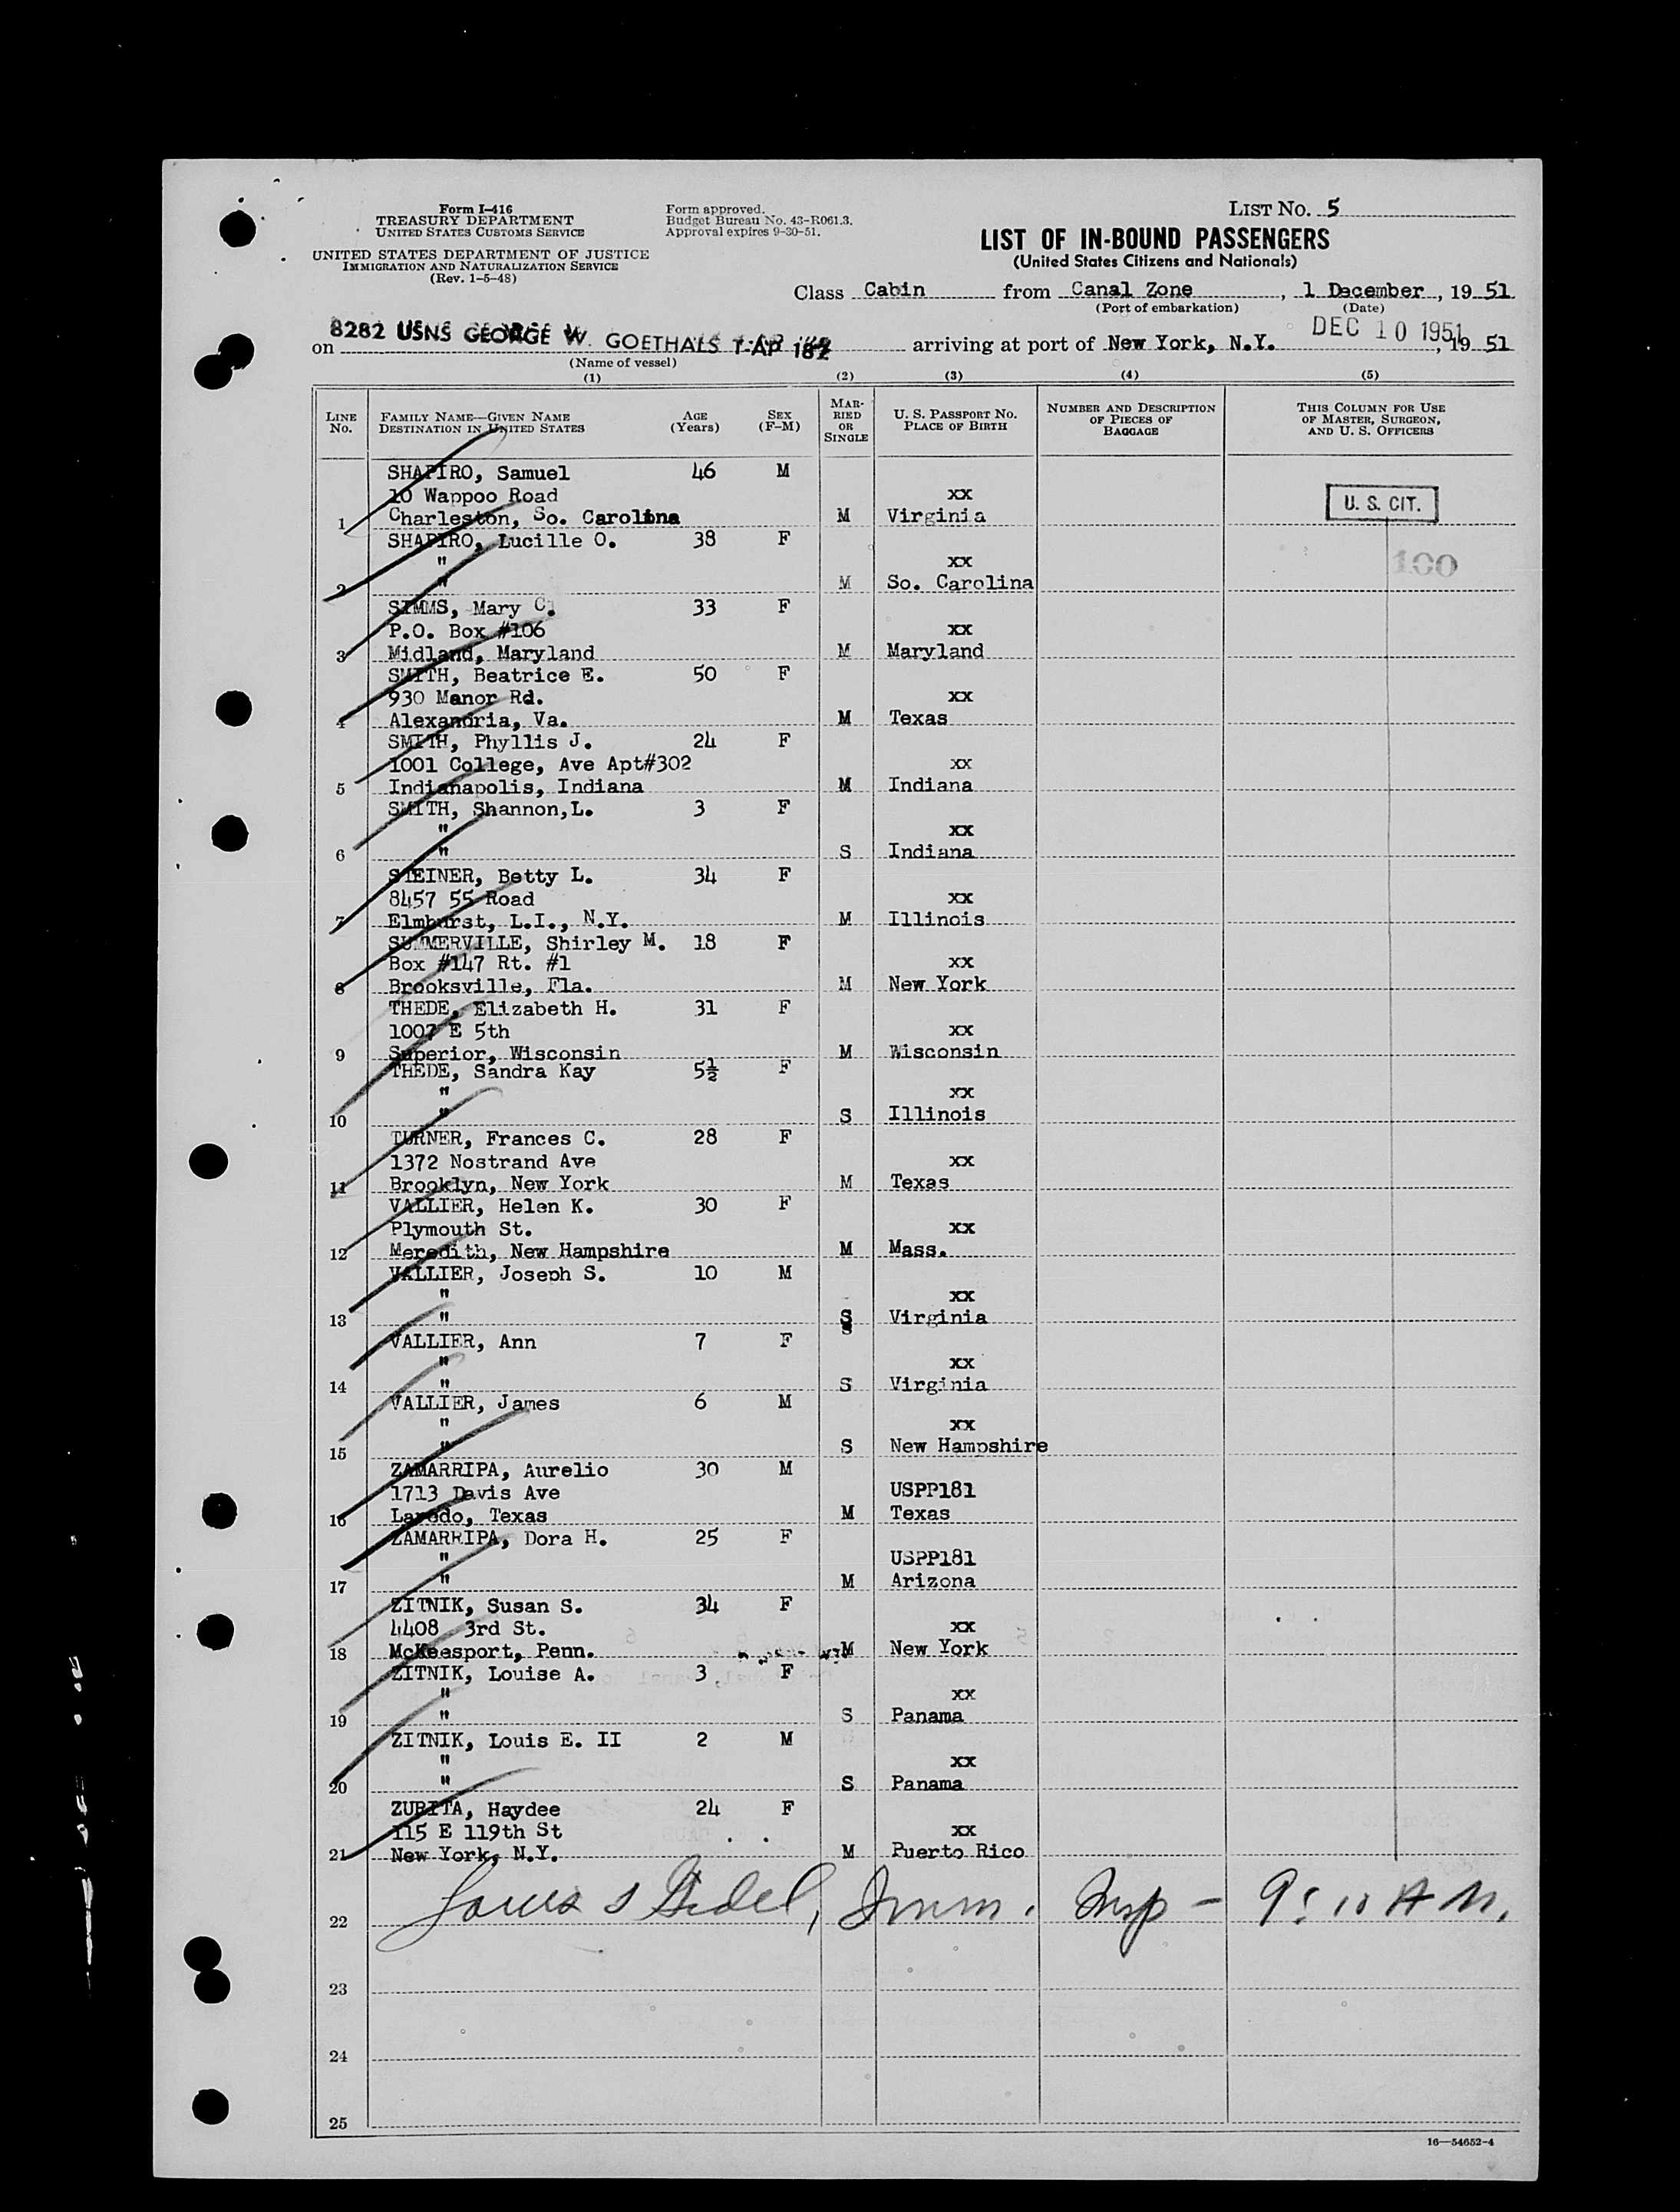 Form I-416
TREASURY DEPARTMENT
UNITED STATES CUSTOMS SERVICE
UNITED STATES DEPARTMENT OF JUSTICE
IMMIGRATION AND NATURALIZATION SERVICE
(Rev. 1-5-48)
Form approved.
Budget Bureau No. 43-R061.3.
Approval expires 9-30-51.
LIST No. 5
LIST OF IN-BOUND PASSENGERS
(United States Citizens and Nationals)
Class Cabin from Canal Zone, 1 December, 19 51
(Port of embarkation) (Date)
DEC 10 1951
on 8282 USNS GEORGE W. GOETHALS T-AP 182 arriving at port of New York, N.Y. , 19 51
(Name of vessel)
(1) (2) (3) (4) (5)
LINE No. FAMILY NAME—GIVEN NAME DESTINATION IN UNITED STATES AGE (Years) SEX (F-M) MARRIED OR SINGLE U. S. PASSPORT NO. PLACE OF BIRTH NUMBER AND DESCRIPTION OF PIECES OF BAGGAGE THIS COLUMN FOR USE OF MASTER, SURGEON, AND U. S. OFFICERS
SHAPIRO, Samuel 46 M
10 Wappoo Road xx U. S. CIT.
1 Charleston, So. Carolina M Virginia
SHAPIRO, Lucille O. 38 F
" xx 100
2 " M So. Carolina
SIMMS, Mary C. 33 F
P.O. Box #106 xx
3 Midland, Maryland M Maryland
SMITH, Beatrice E. 50 F
930 Manor Rd. xx
4 Alexandria, Va. M Texas
SMITH, Phyllis J. 24 F
1001 College, Ave Apt#302 xx
5 Indianapolis, Indiana M Indiana
SMITH, Shannon,L. 3 F
" xx
6 " S Indiana
STEINER, Betty L. 34 F
8457 55 Road xx
7 Elmhurst, L.I., N.Y. M Illinois
SUMMERVILLE, Shirley M. 18 F
Box #147 Rt. #1 xx
8 Brooksville, Fla. M New York
THEDE, Elizabeth H. 31 F
1007 E 5th xx
9 Superior, Wisconsin M Wisconsin
THEDE, Sandra Kay 5½ F
" xx
10 " S Illinois
TURNER, Frances C. 28 F
1372 Nostrand Ave xx
11 Brooklyn, New York M Texas
VALLIER, Helen K. 30 F
Plymouth St. xx
12 Meredith, New Hampshire M Mass.
VALLIER, Joseph S. 10 M
" xx
13 " S Virginia
VALLIER, Ann 7 F
" xx
14 " S Virginia
VALLIER, James 6 M
" xx
15 " S New Hampshire
ZAMARRIPA, Aurelio 30 M
1713 Davis Ave USPP181
16 Laredo, Texas M Texas
ZAMARRIPA, Dora H. 25 F
" USPP181
17 " M Arizona
ZITNIK, Susan S. 34 F
4408 3rd St. xx
18 McKeesport, Penn. M New York
ZITNIK, Louise A. 3 F
" xx
19 " S Panama
ZITNIK, Louis E. II 2 M
" xx
20 " S Panama
ZURITA, Haydee 24 F
115 E 119th St xx
21 New York, N.Y. M Puerto Rico
22 Imm. Insp - 9:10 A M.
23
24
25
16—54652-4